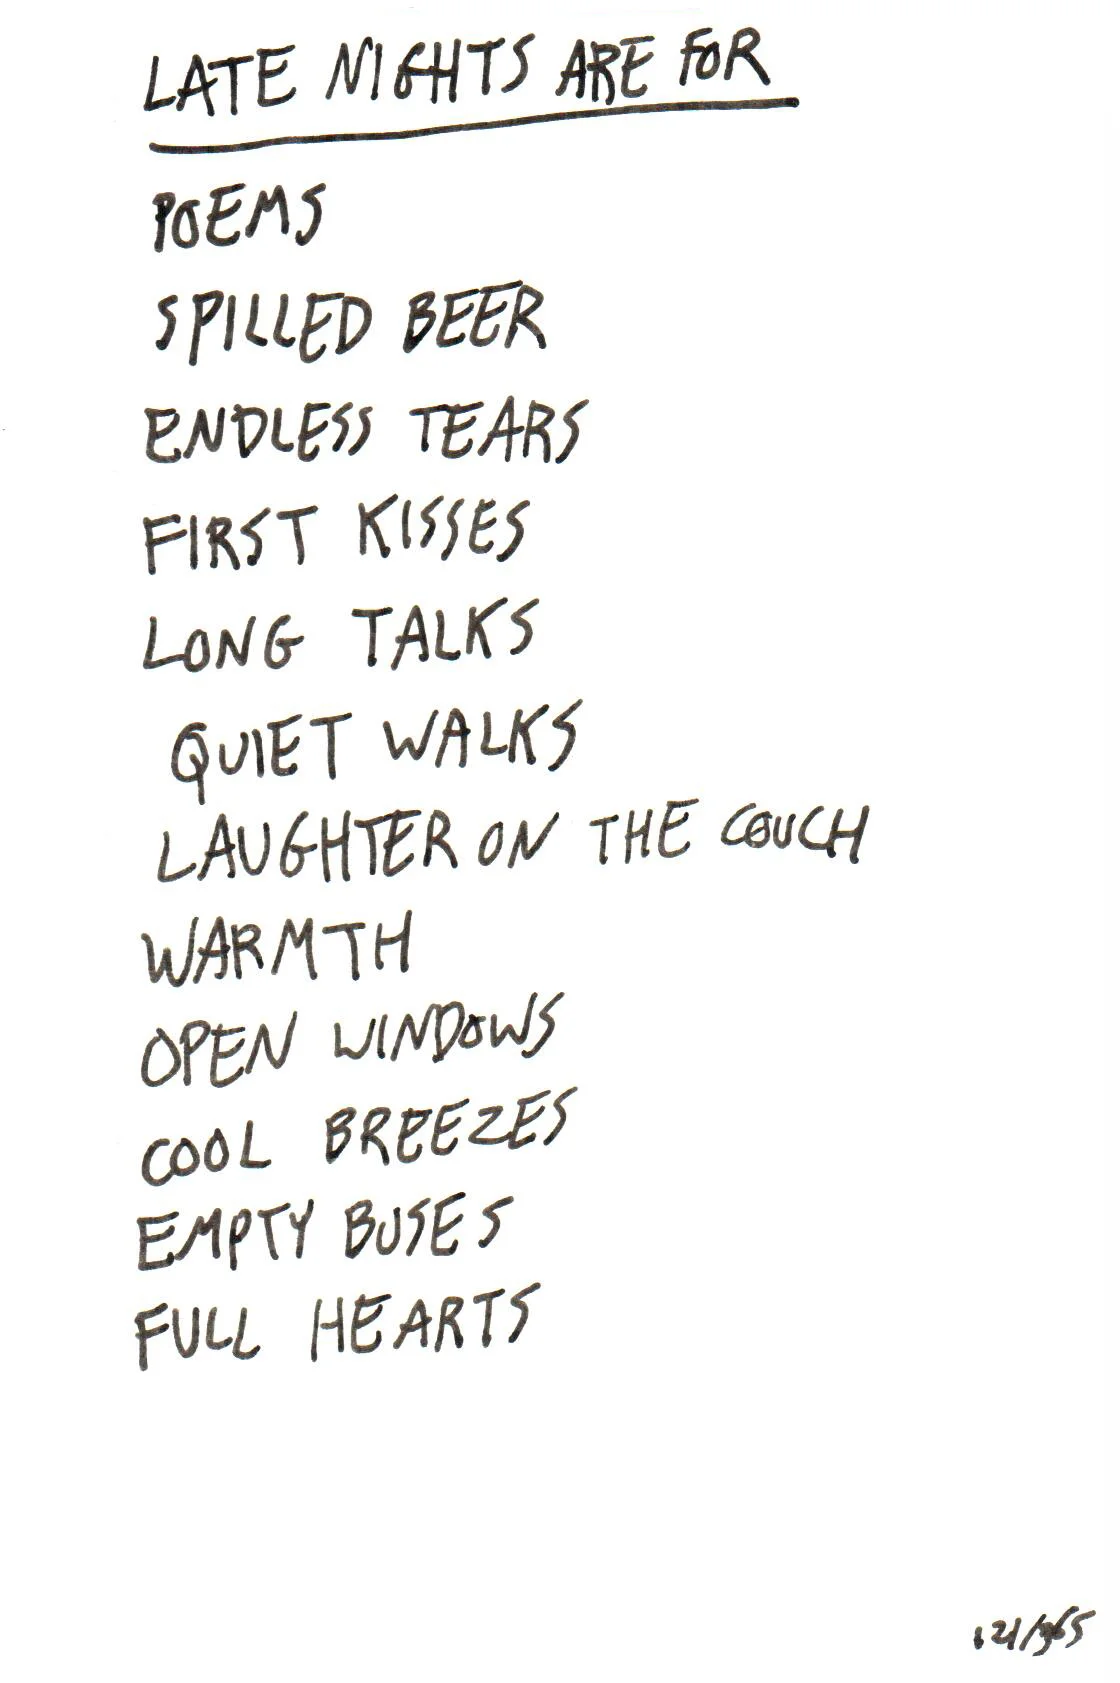 LATE NIGHTS ARE FOR
POEMS
SPILLED BEER
ENDLESS TEARS
FIRST KISSES
LONG TALKS
QUIET WALKS
LAUGHTER ON THE COUCH
WARMTH
OPEN WINDOWS
COOL BREEZES
EMPTY BUSES
FULL HEARTS
121/365